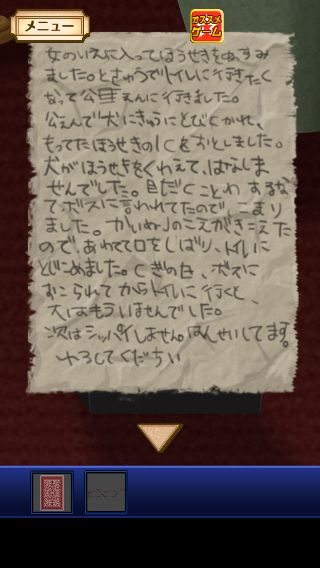 メニュー
オススメ
ゲーム
女のいえに入ってほうせきをぬすみ
ました。とちゅうでトイレに行きたく
なって公里えんに行きました。
公えんで犬にきゅうにとびつかれ、
もってたほうせきの1つをおとしました。
犬がほうせきをくわえて、はなしま
せんでした。目だつことわ するな
てボスに言われてたので、こまり
ました。かいぬしのこえがきこえた
ので、あわてて口をしばり、トイレに
とじこめました。つぎの日、ボスに
おこられてからトイレに行くと、
犬はもういませんでした。
次はシッパイしません。はんせいしてます。
ゆろしてくだちい